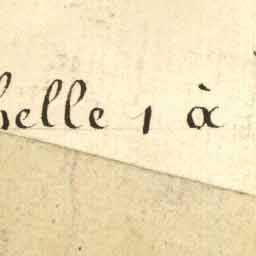 helle 1 à